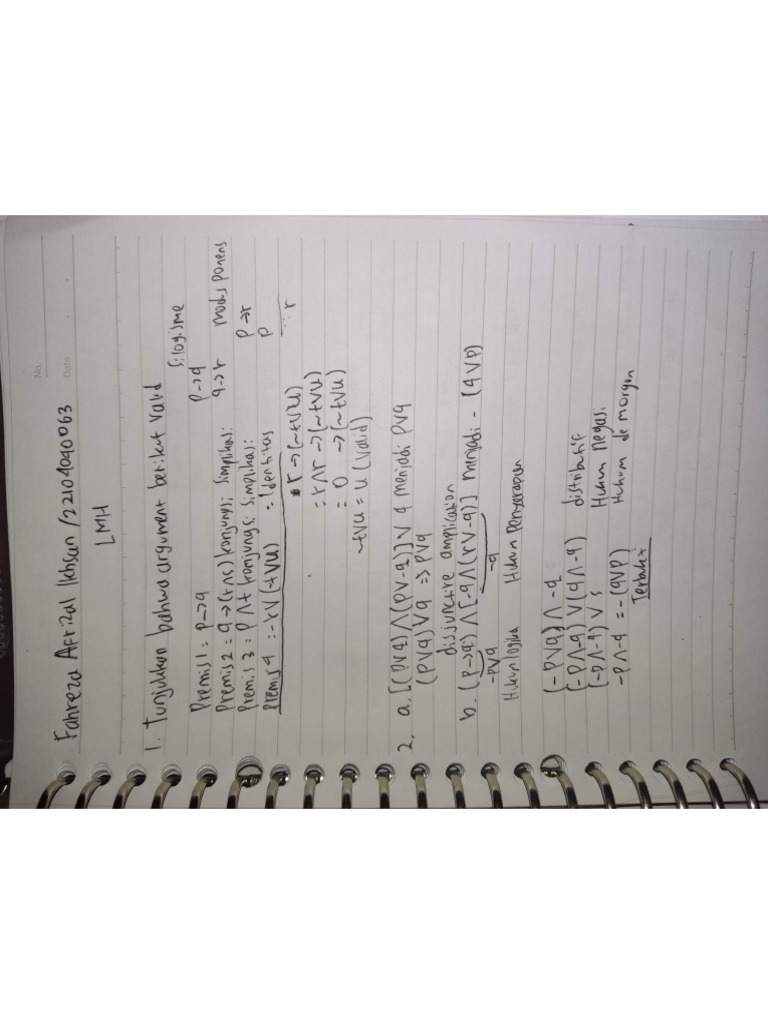 No.
Date
Fahreza Afrizal Ikhsan / 22104040063
LMH
1. Tunjukkan bahwa argument berikut valid
Silogisme
Premis 1 = p → q
p → q
Premis 2 = q → (r ∧ s) konjungsi simplikas:
q → r modus ponens
Premis 3 = p ∧ t konjungsi simplikas:
p → r
Premis 4 = -r ∨ (-t ∨ u) = Identitas
p
∴ r
r → (~t ∨ u)
= r ∧ r → (~t ∨ u)
= 0 → (~t ∨ u)
~t ∨ u = u (valid)
2. a. [(p ∨ q) ∧ (p ∨ -q)] ∨ q menjadi p ∨ q
(p ∨ q) ∨ q => p ∨ q
disjunctive amplication
b. (p → q) ∧ [-q ∧ (r ∨ -q)] menjadi - (q ∨ p)
-p ∨ q -q
Hukum logika Hukum penyerapan
(-p ∨ q) ∧ -q
(-p ∧ -q) ∨ (q ∧ -q) distributif
(-p ∧ -q) ∨ s Hukum negasi
-p ∧ -q = - (q ∨ p) Hukum de morgan
Terbukti